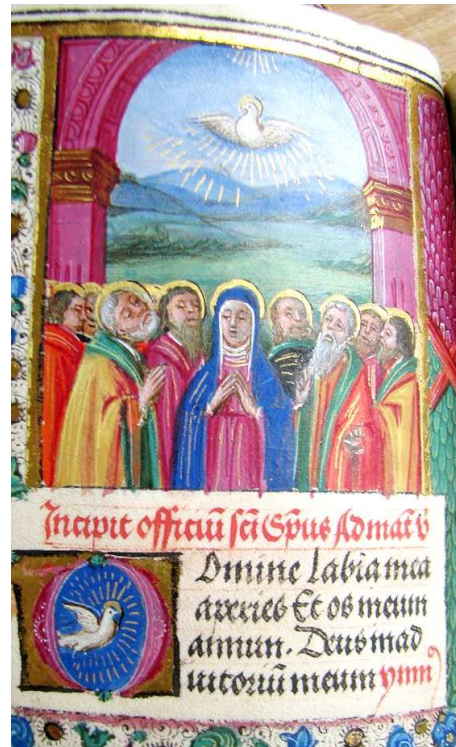 Incipit officiū scī Sp̄us Ad mat̄ ꝟ
Omine labia mea
aperies Et os meum
annun. Deus in ad
iutoriū meum ymn